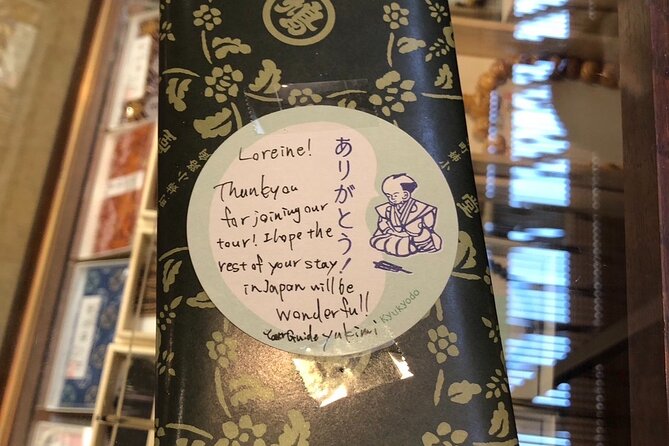 Loreine!
Thank you
for joining our
tour! I hope the
rest of your stay
in Japan will be
wonderfull
Guide Yukimi
ありがとう!
KYUKYODO